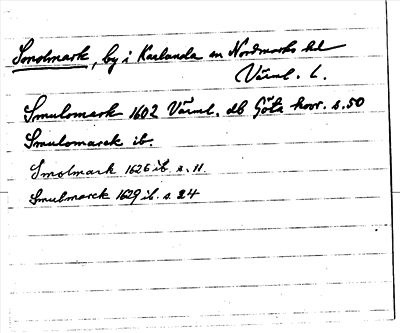 Smolmark, by i Karlanda sn Nordmarks hd
Värml. l.
Smulomark 1602 Värml. db Göta hovr. s. 50
Smulomarck ib.
Smolmark 1626 ib. s. 11.
Smulmarck 1629 ib. s 24